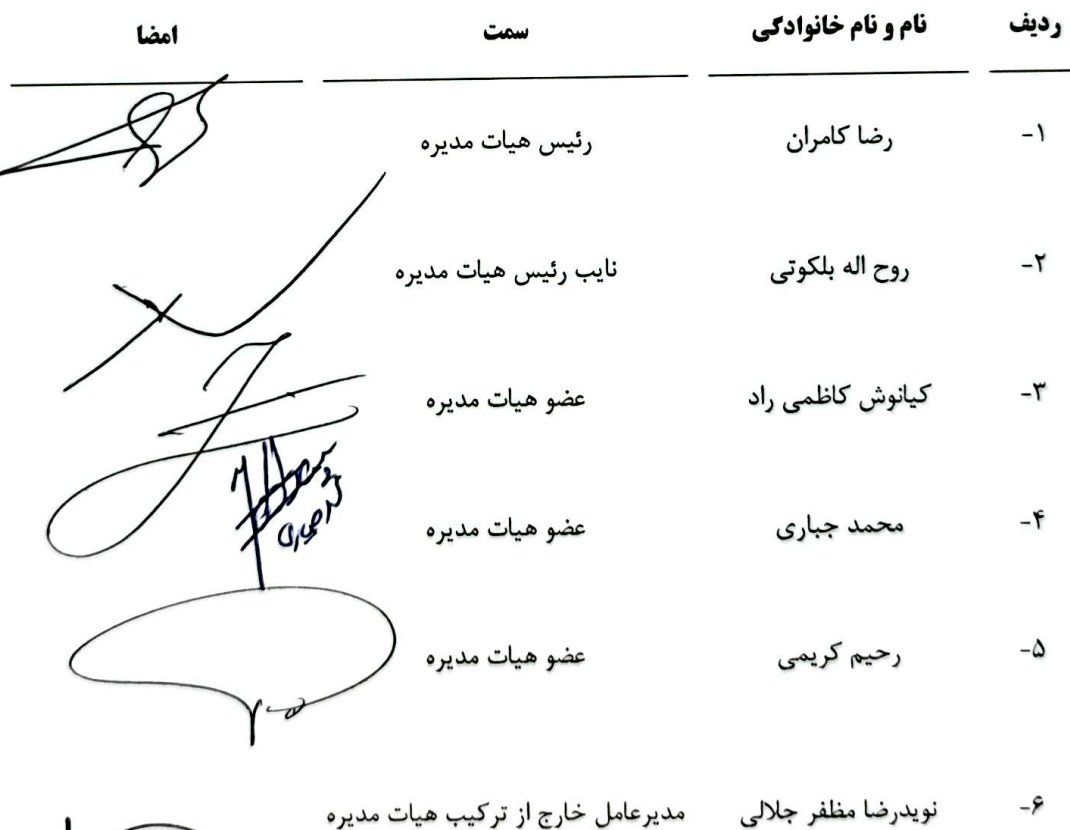 ردیف نام و نام خانوادگی سمت امضا
۱- رضا کامران رئیس هیات مدیره
۲- روح اله بلکوتی نایب رئیس هیات مدیره
۳- کیانوش کاظمی راد عضو هیات مدیره
۴- محمد جباری عضو هیات مدیره
۵- رحیم کریمی عضو هیات مدیره
۶- نویدرضا مظفر جلالی مدیرعامل خارج از ترکیب هیات مدیره